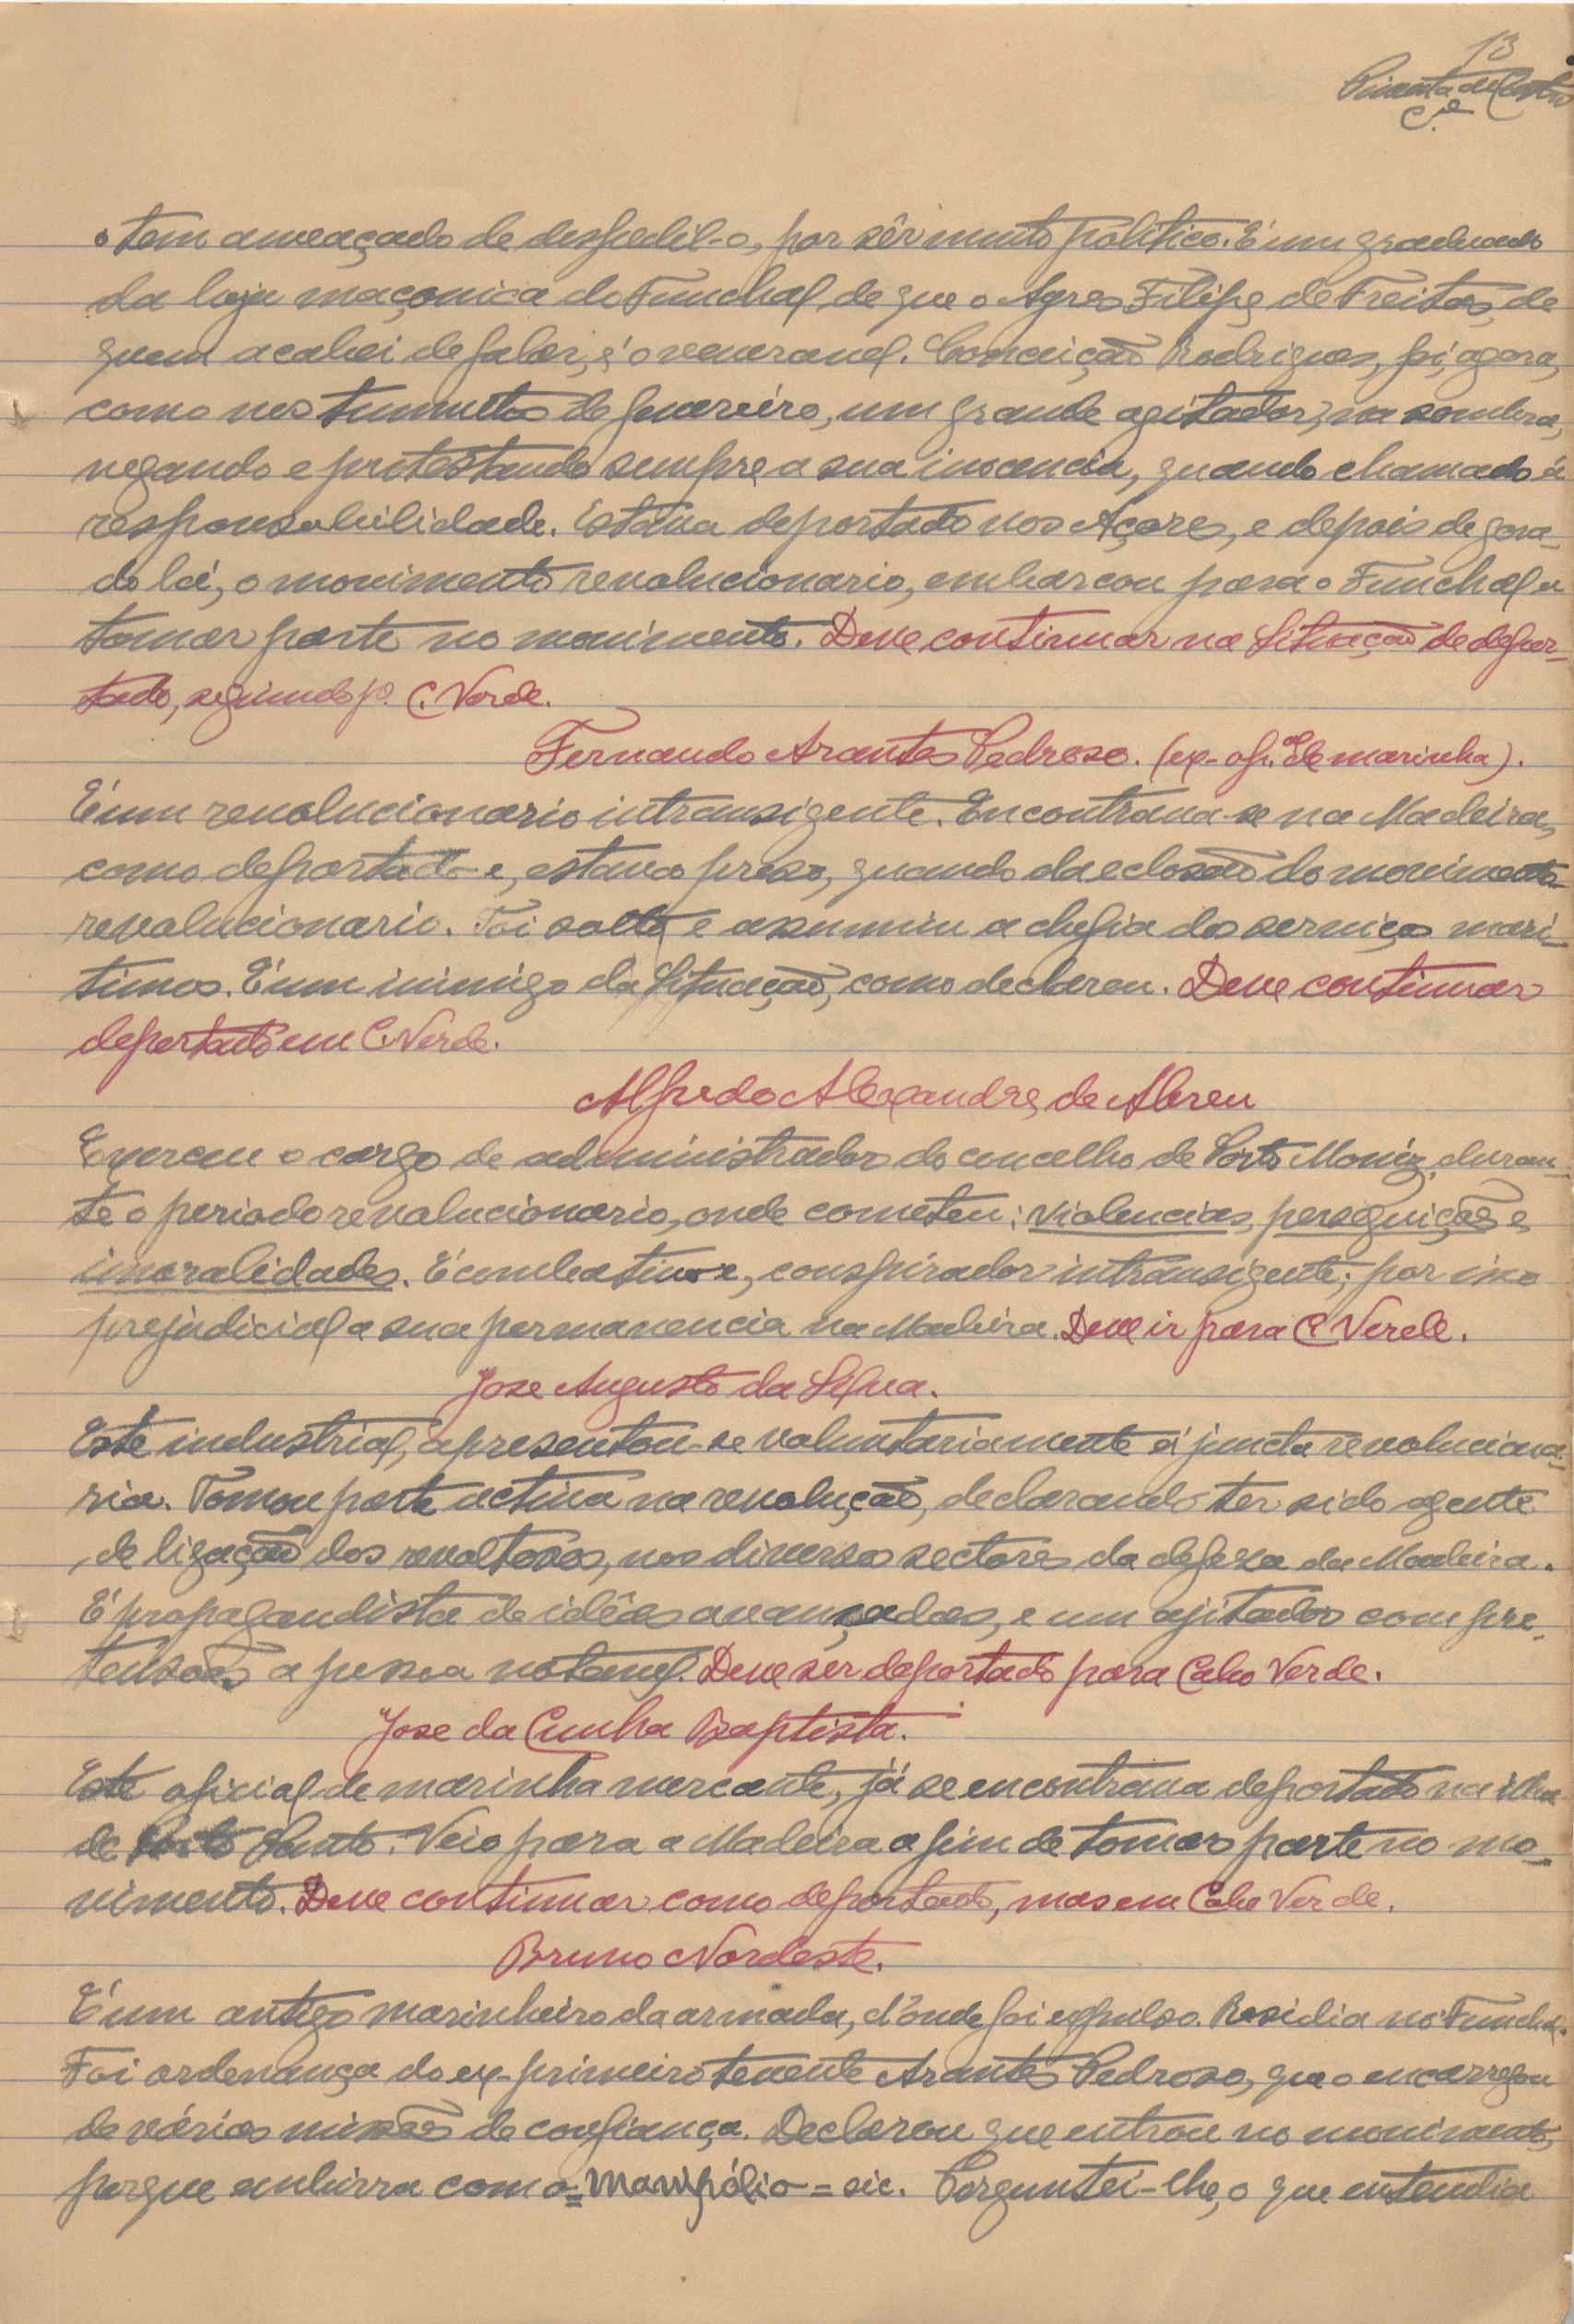 13
Pimenta de Castro
C.el
o tem ameaçado de despedil-o, por sêr muito politico. É um graduado
da loja maçonica do Funchal de que o Agres. Filipe de Freitas, de
quem acabei de falar, é o veneravel. Conceição Rodrigues, foi, agora,
como nos tumultos de fevereiro, um grande agitador, na sombra,
negando e protestando sempre a sua inocencia, quando chamado á
responsabilidade. Estava deportado nos Açores, e depois de gora-
do lá, o movimento revolucionario, embarcou para o Funchal a
tomar parte no movimento. Deve continuar na situação de depor-
tado, seguindo p.ª C. Verde.
Fernando Arantes Pedroso. (ex-of.al de marinha).
É um revolucionario intransigente. Encontrava-se na Madeira,
como deportado e, estava preso, quando da eclosão do movimento
revolucionario. Foi solto e assumiu a chefia dos serviços mari-
timos. É um inimigo da Situação, como declarou. Deve continuar
deportado em C. Verde.
Alfredo Alexandre de Abreu
Exerceu o cargo de administrador do concelho de Porto Moniz, duran-
te o periodo revolucionario, onde cometeu: violencias, perseguições e
imoralidades. É combativo e, conspirador intransigente; por isso
prejudicial a sua permanencia na Madeira. Deve ir para C. Verde.
Jose Augusto da Silva.
Este industrial, apresentou-se voluntariamente á juncta revoluciona-
ria. Tomou parte activa na revolução, declarando ter sido agente
de ligação dos revoltosos, nos diversos sectores da defesa da Madeira.
É propagandista de idêas avançadas, e um ajitador com pre-
tensões a pessoa notavel. Deve ser deportado para Cabo Verde.
Jose da Cunha Baptista.
Este oficial de marinha mercante, já se encontrava deportado na ilha
de Porto Santo. Veio para a Madeira a fim de tomar parte no mo-
vimento. Deve continuar como deportado, mas em Cabo Verde.
Bruno Nordeste.
É um antigo marinheiro da armada, d'onde foi expulso. Residia no Funchal.
Foi ordenança do ex-primeiro tenente Arantes Pedroso, que o encarregou
de várias missões de confiança. Declarou que entrou no movimento,
porque embirra com o = manipólio = sic. Perguntei-lhe, o que entendia